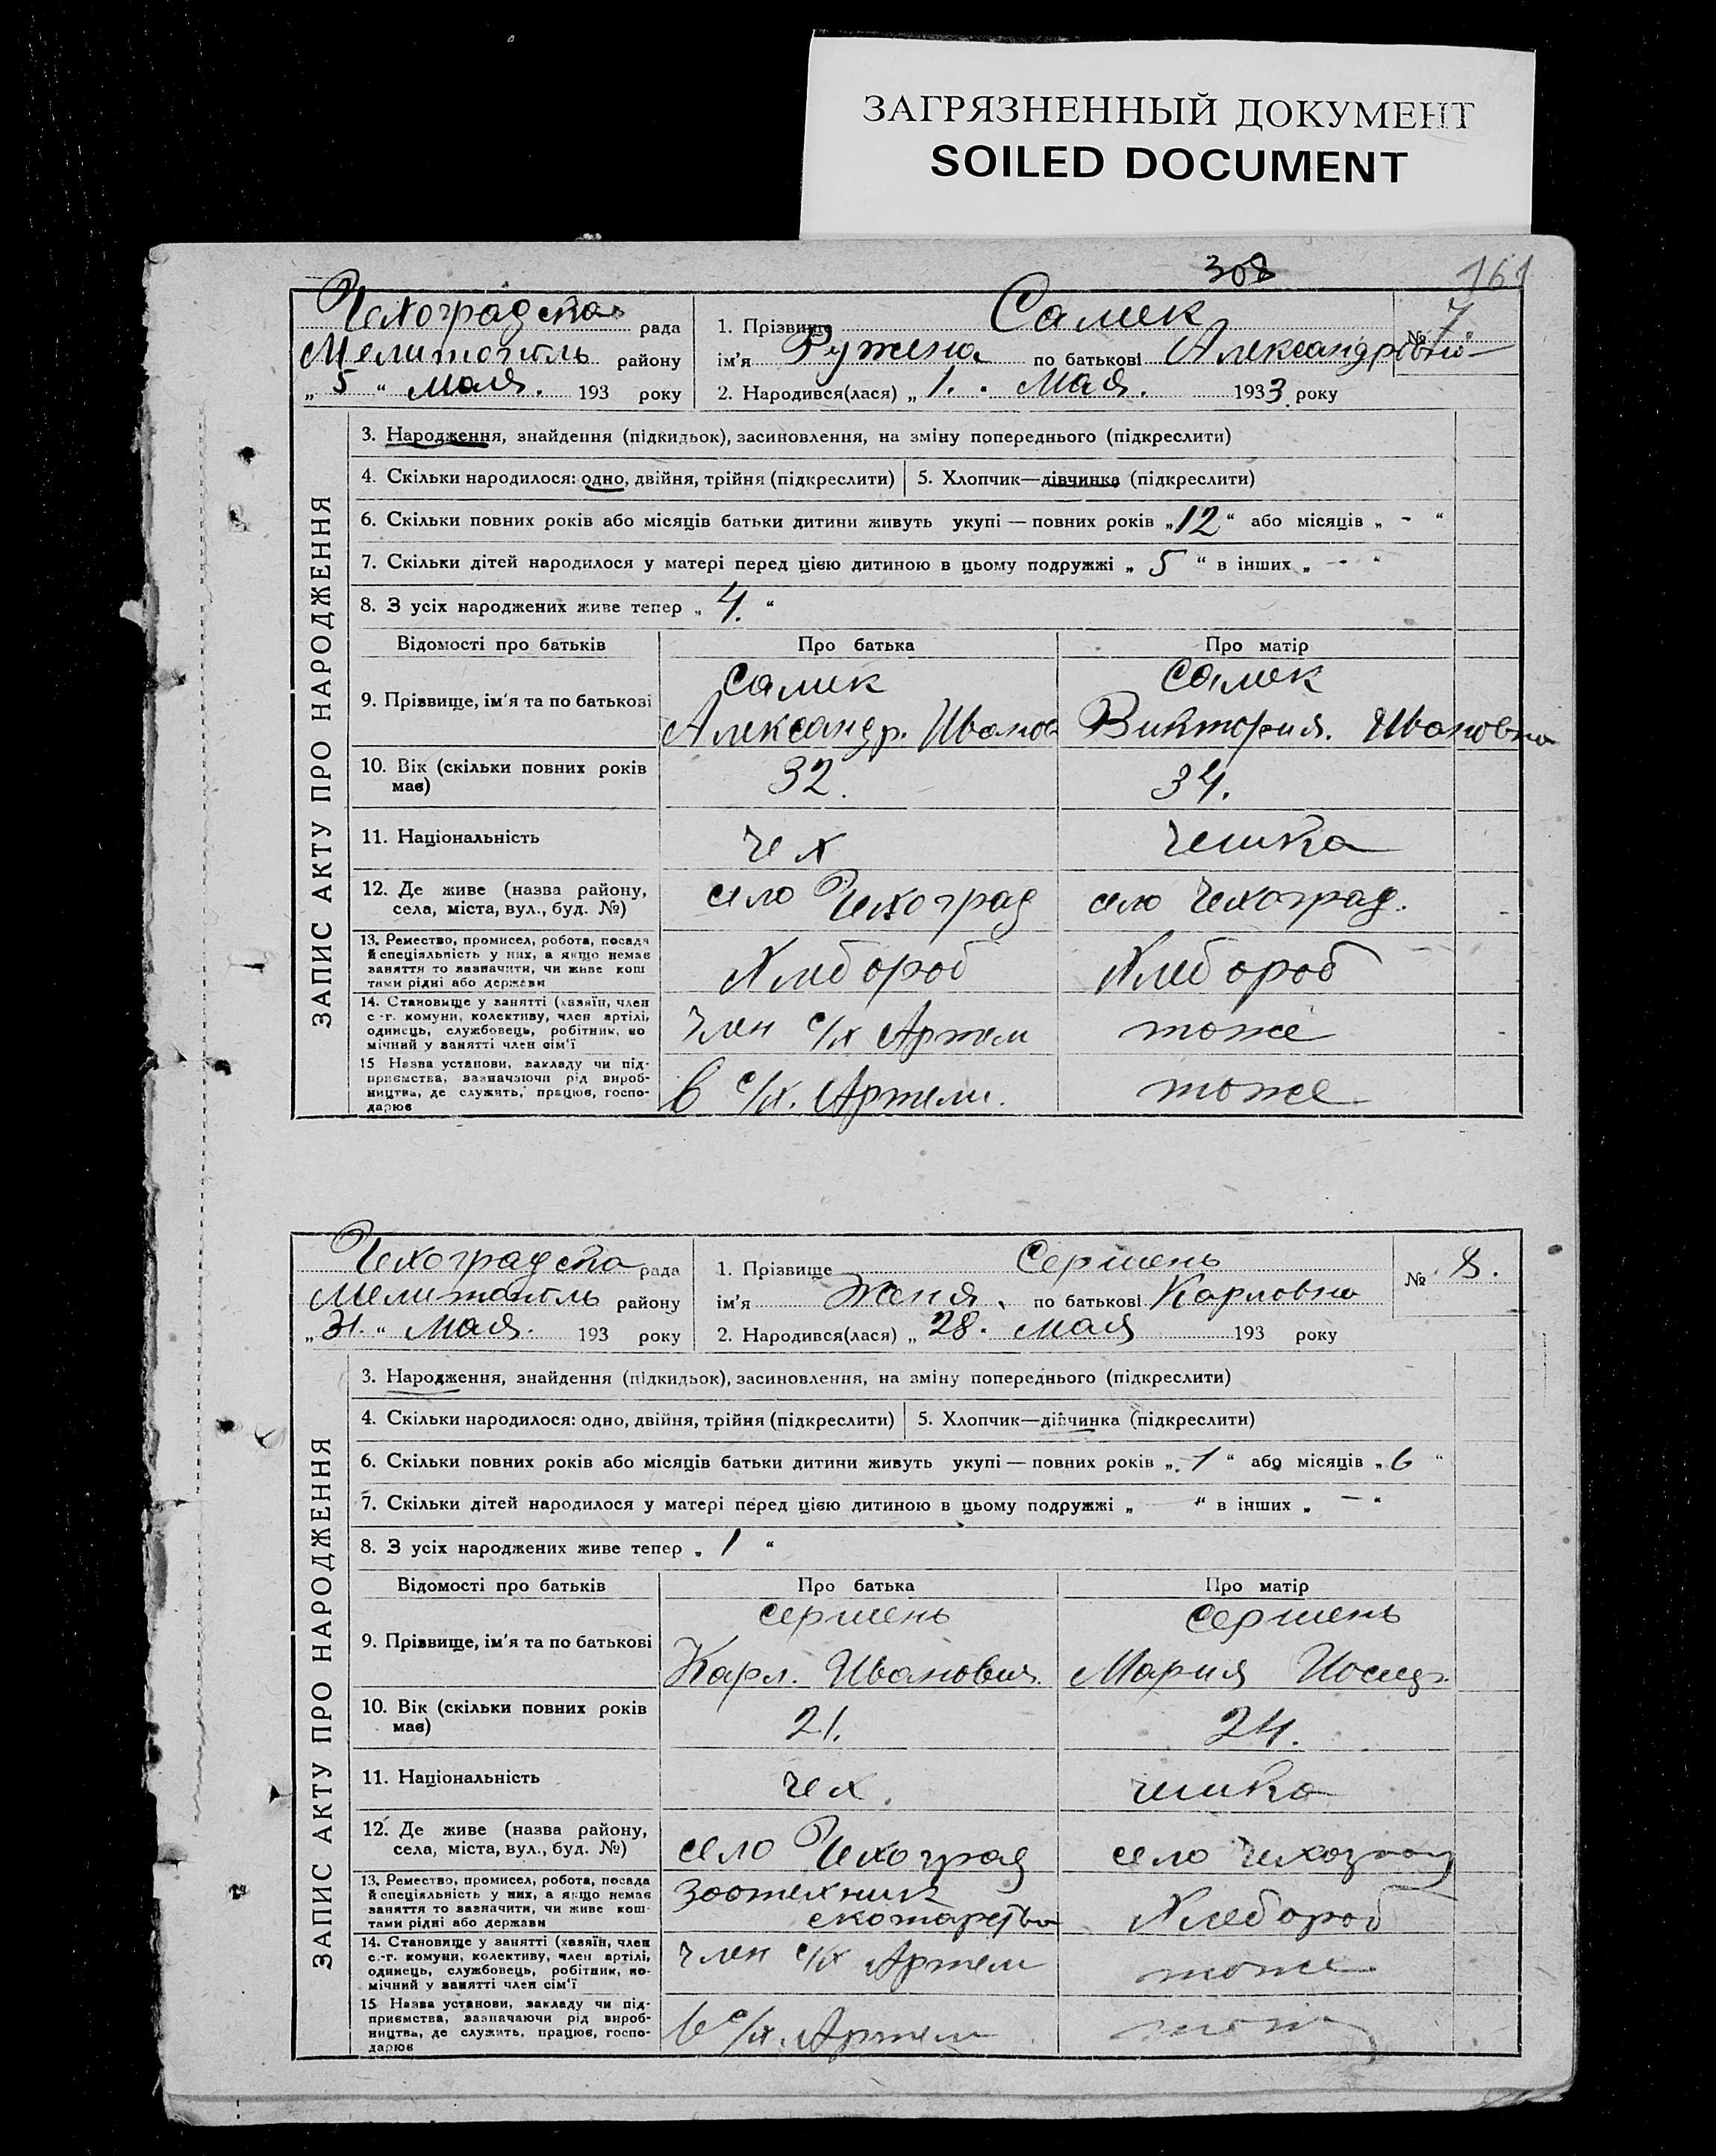 ЗАГРЯЗНЕННЫЙ ДОКУМЕНТ
SOILED DOCUMENT
308
161
Чехоградска рада
Мелитополь району
„ 5 “ Мая. 193 року
1. Прізвище Самек
№ 7.
ім'я Ружена по батькові Александровна
2. Народився(лася) „ 1. Мая. 1933 року
ЗАПИС АКТУ ПРО НАРОДЖЕННЯ
3. Народження, знайдення (підкидьок), засиновлення, на зміну попереднього (підкреслити)
4. Скільки народилося: одно, двійня, трійня (підкреслити) 5. Хлопчик—дівчинка (підкреслити)
6. Скільки повних років або місяців батьки дитини живуть укупі — повних років „ 12 “ або місяців „ - “
7. Скільки дітей народилося у матері перед цією дитиною в цьому подружжі „ 5 “ в інших „ - “
8. З усіх народжених живе тепер „ 4. “
Відомості про батьків Про батька Про матір
9. Прізвище, ім'я та по батькові
Самек
Александр. Иванов
Самек
Виктория. Ивановна
10. Вік (скільки повних років має) 32. 34.
11. Національність чех чешка
12. Де живе (назва району, села, міста, вул., буд. №)
село Чехоград село Чехоград.
13. Ремество, промисел, робота, посада
й спеціяльність у них, а якщо немає
заняття то зазначити, чи живе кош
тами рідні або держави
Хлебороб Хлебороб
14. Становище у занятті (хазяїн, член
с.-г. комуни, колективу, член артілі,
одинець, службовець, робітник, по
мічний у занятті член сім'ї
член с/х Артели тоже
15 Назва установи, закладу чи під-
приємства, зазначаючи рід вироб-
ництва, де служить, працює, госпо-
дарює
в с/х. Артели. тоже
Чехоградска рада
Мелитополь району
„ 31. “ Мая. 193 року
1. Прізвище Сершень
№ 8.
ім'я Женя. по батькові Карловна
2. Народився(лася) „ 28. Мая 193 року
ЗАПИС АКТУ ПРО НАРОДЖЕННЯ
3. Народження, знайдення (підкидьок), засиновлення, на зміну попереднього (підкреслити)
4. Скільки народилося: одно, двійня, трійня (підкреслити) 5. Хлопчик—дівчинка (підкреслити)
6. Скільки повних років або місяців батьки дитини живуть укупі — повних років „ 1 “ або місяців „ 6 “
7. Скільки дітей народилося у матері перед цією дитиною в цьому подружжі „ “ в інших „ — “
8. З усіх народжених живе тепер „ 1 “
Відомості про батьків Про батька Про матір
9. Прізвище, ім'я та по батькові
Сершень
Карл. Иванович.
Сершень
Мария Иосиф.
10. Вік (скільки повних років має) 21. 24.
11. Національність чех. чешка
12. Де живе (назва району, села, міста, вул., буд. №)
село Чехоград село Чехоград
13. Ремество, промисел, робота, посада
й спеціяльність у них, а якщо немає
заняття то зазначити, чи живе кош-
тами рідні або держави
Зоотехник
скотарства
Хлебороб
14. Становище у занятті (хазяїн, член
с.-г. комуни, колективу, член артілі,
одинець, службовець, робітник, по-
мічний у занятті член сім'ї
член с/х Артели тоже
15 Назва установи, закладу чи під-
приємства, зазначаючи рід вироб-
ництва, де служить, працює, госпо-
дарює
в с/х. Артели тоже